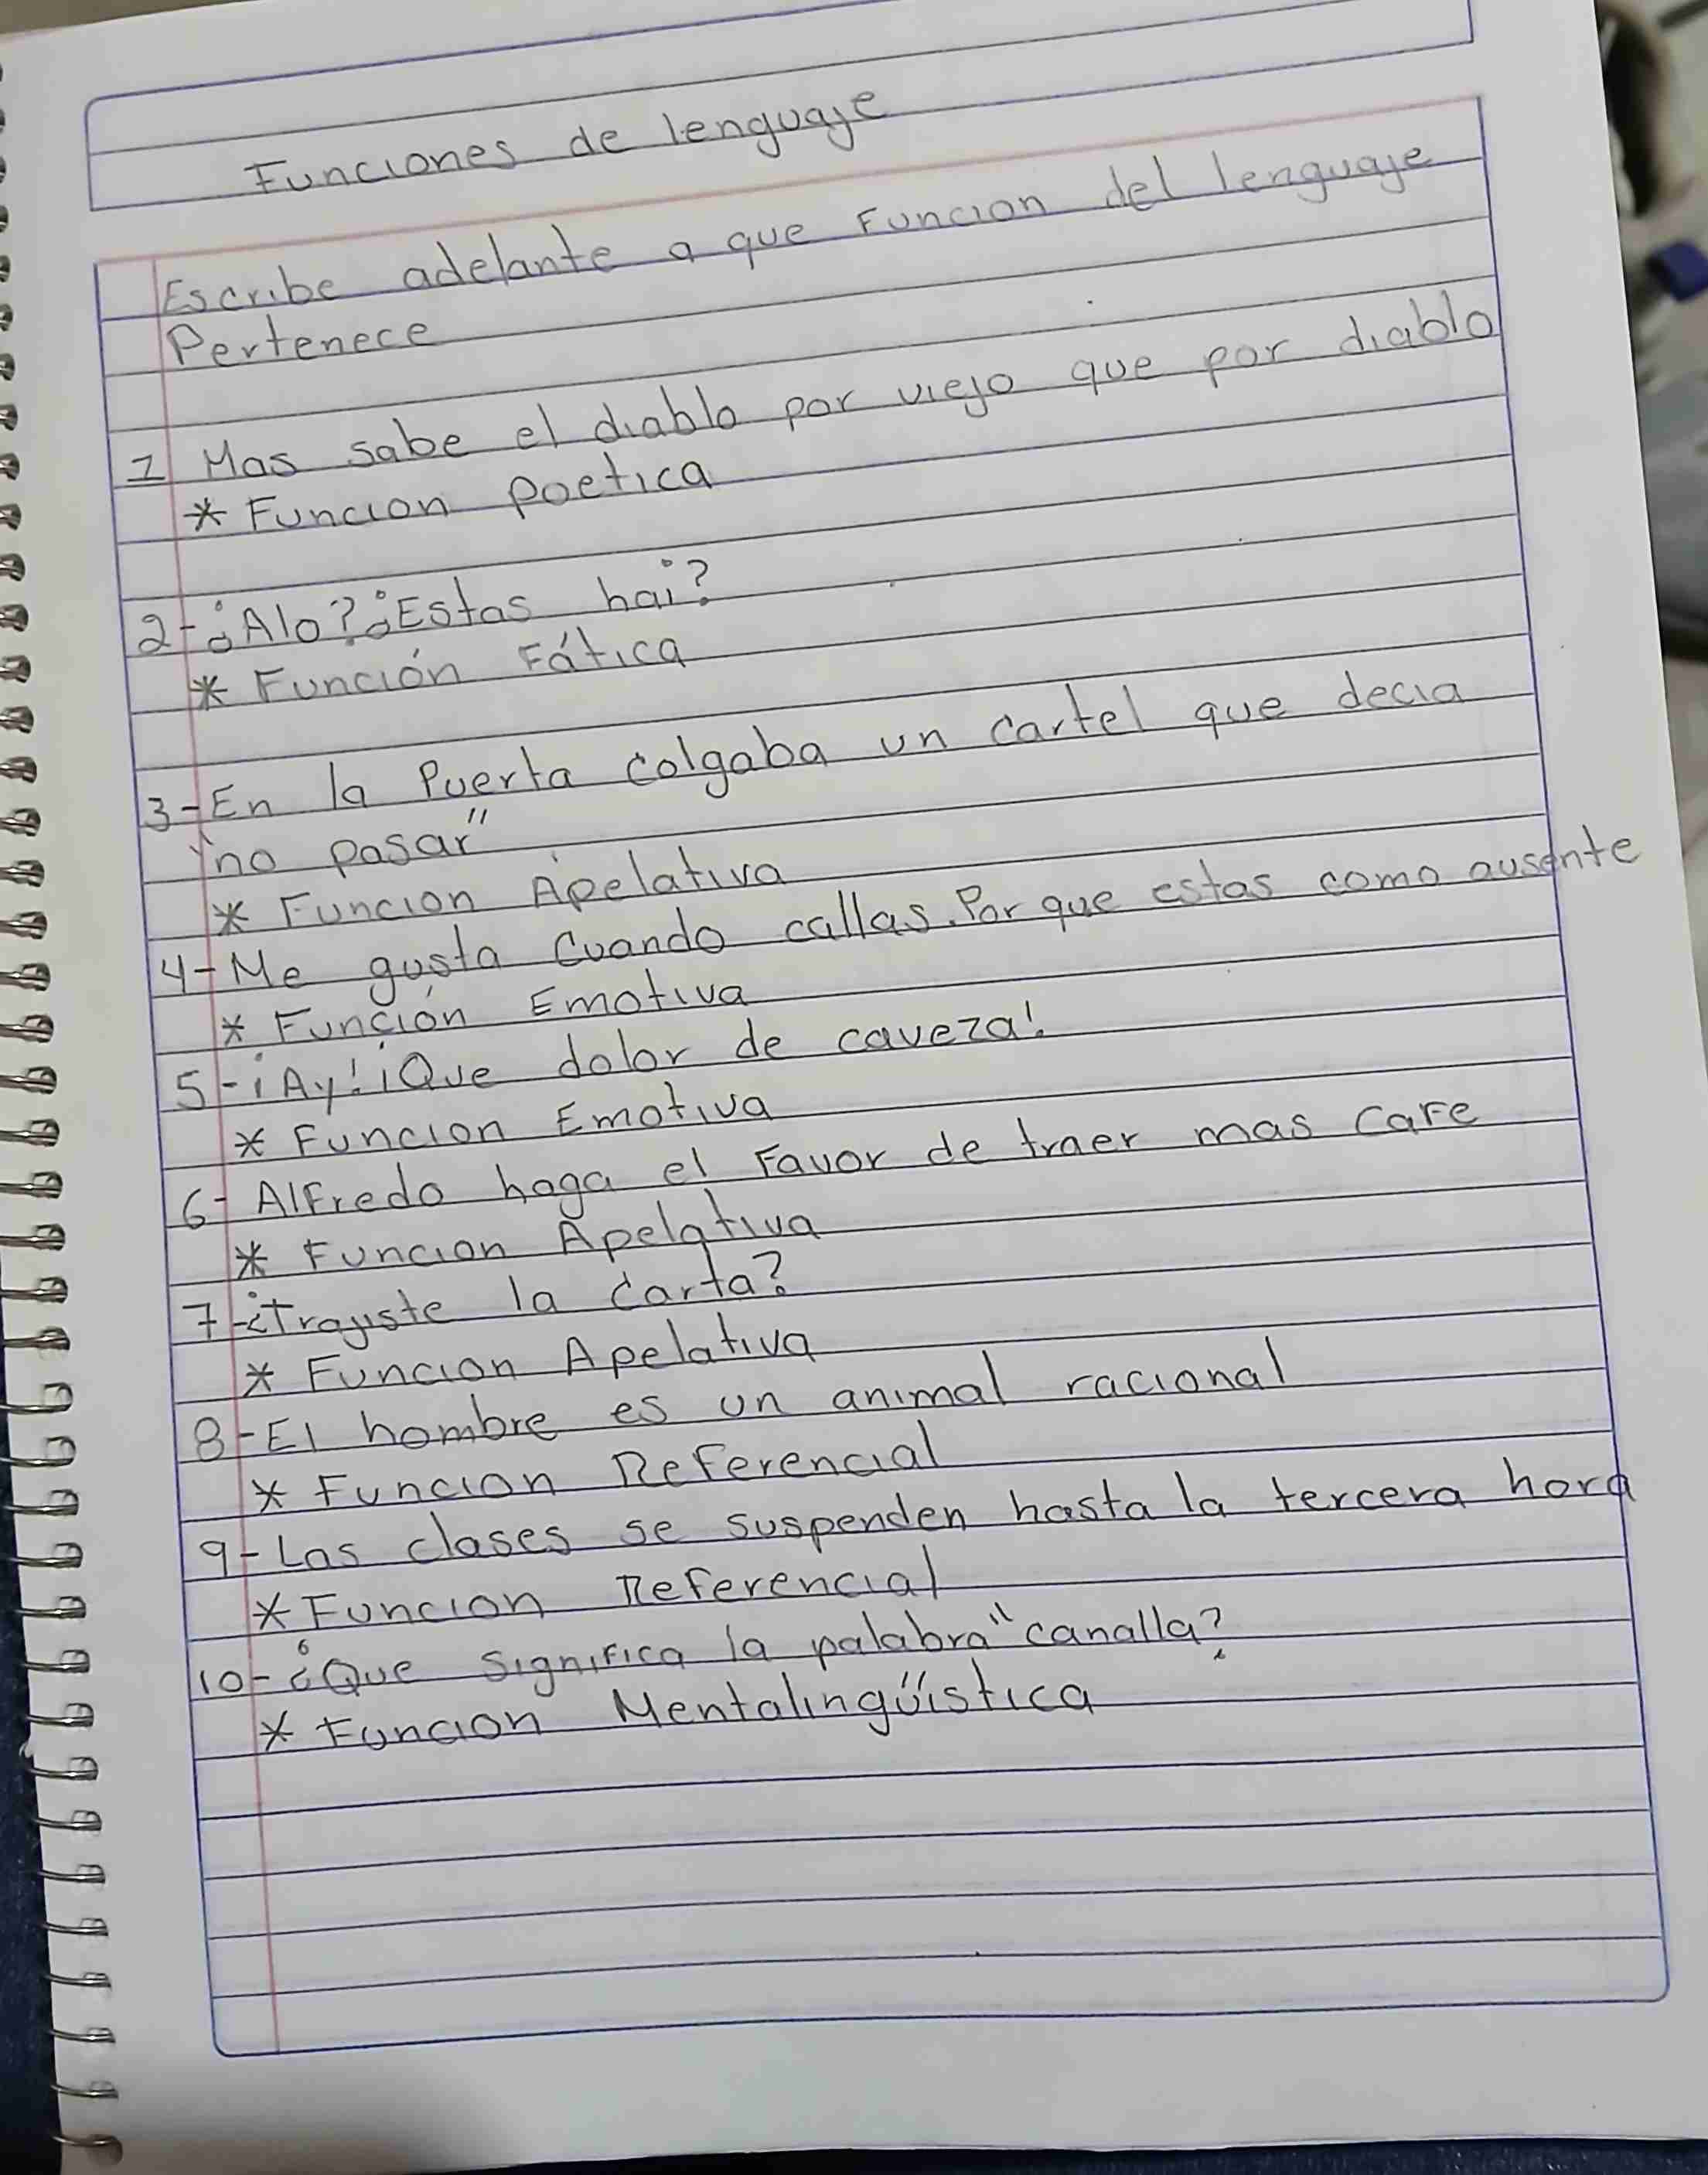 Funciones de lenguaje
Escribe adelante a que Funcion del lenguaje
Pertenece
1 Mas sabe el diablo por viejo que por diablo
* Funcion poetica
2-¿Alo?¿Estas hai?
* Función Fática
3-En la Puerta colgaba un cartel que decia
"no pasar"
* Funcion Apelativa
4-Me gusta Cuando callas. Por que estas como ausente
* Función Emotiva
5-¡Ay!¡Que dolor de caveza!
* Funcion Emotiva
6-Alfredo haga el Favor de traer mas cafe
* Funcion Apelativa
7-¿Trayiste la carta?
* Funcion Apelativa
8-El hombre es un animal racional
* Funcion Referencial
9-Las clases se suspenden hasta la tercera hora
* Funcion Referencial
10-¿Que significa la palabra "canalla?
* Funcion Mentalingüistica